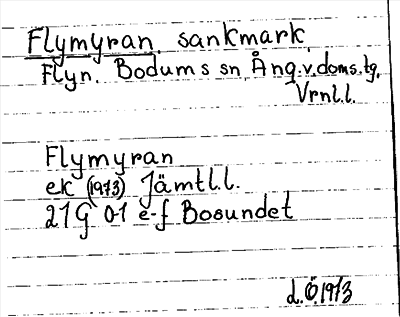 Flymyran, sankmark
Flyn. Bodums sn Ång.v.doms.tg.
Vrnl.l.
Flymyran
ek (1973) Jämtl.l.
21G 0-1 e-f Bosundet
d.Ö.1973